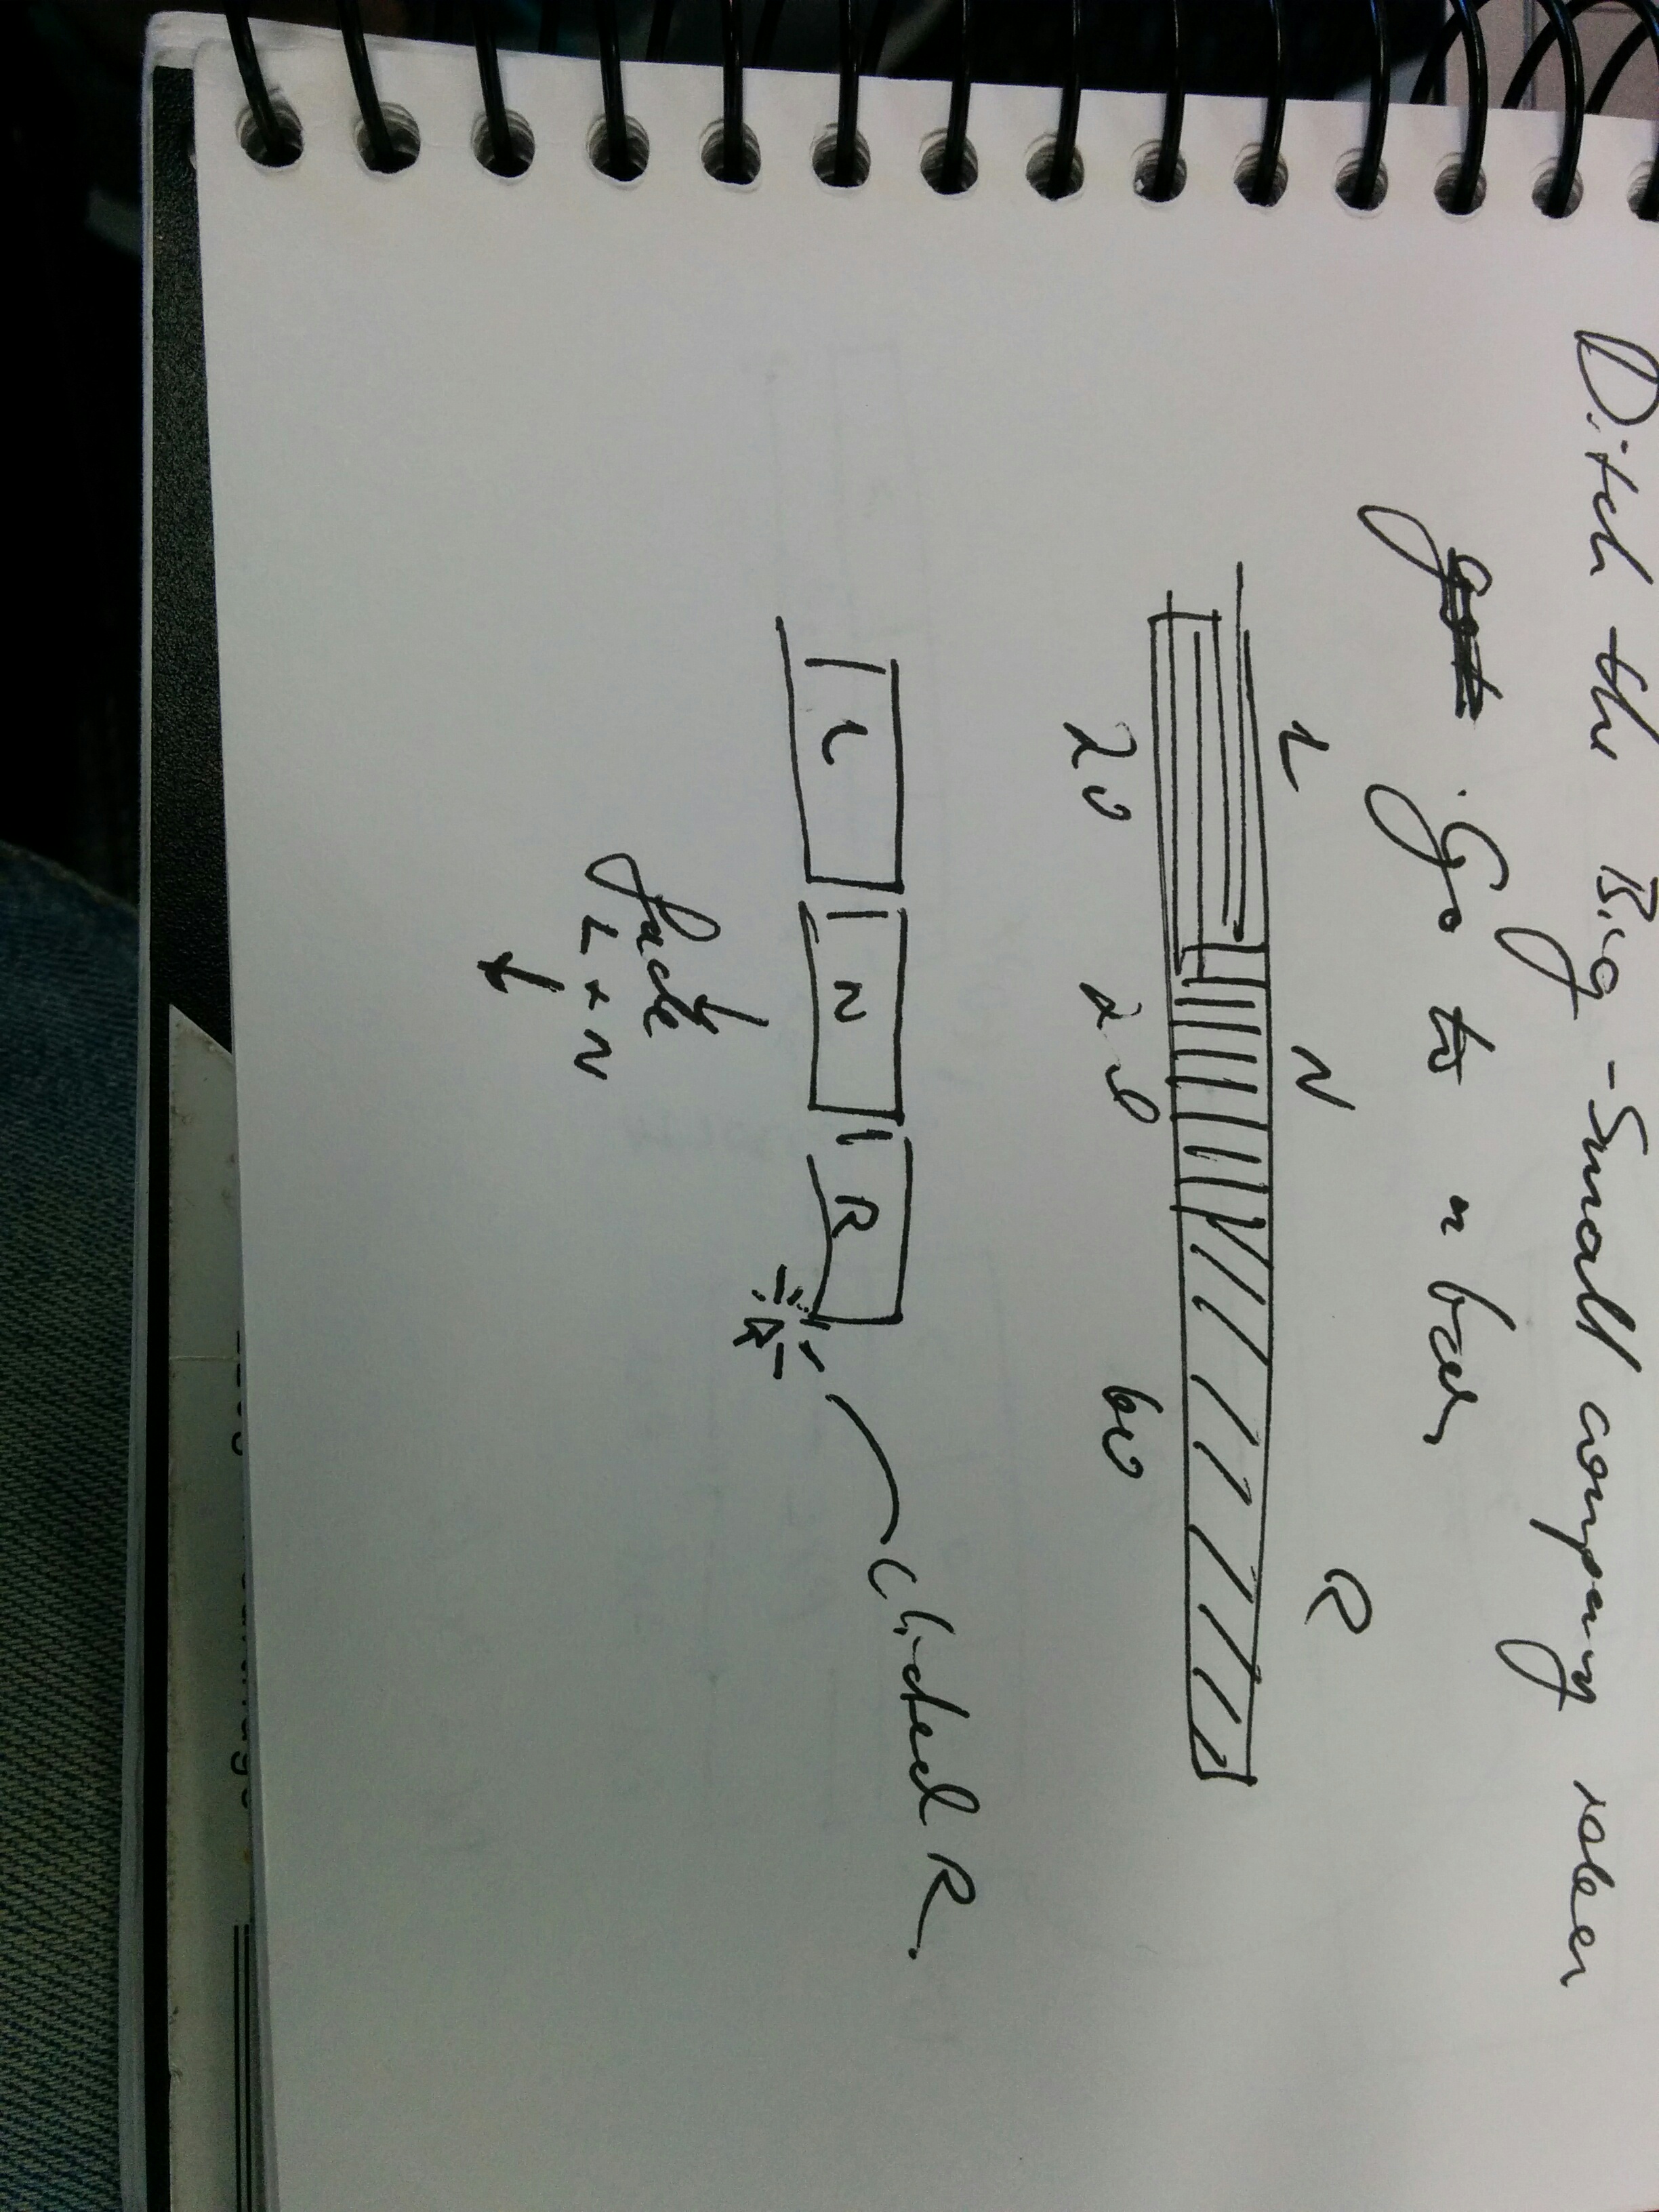 Ditch the Big-Small company roles
Go to n bar
L N R
20 20 60
L N R
Clicked R.
fade
L + N